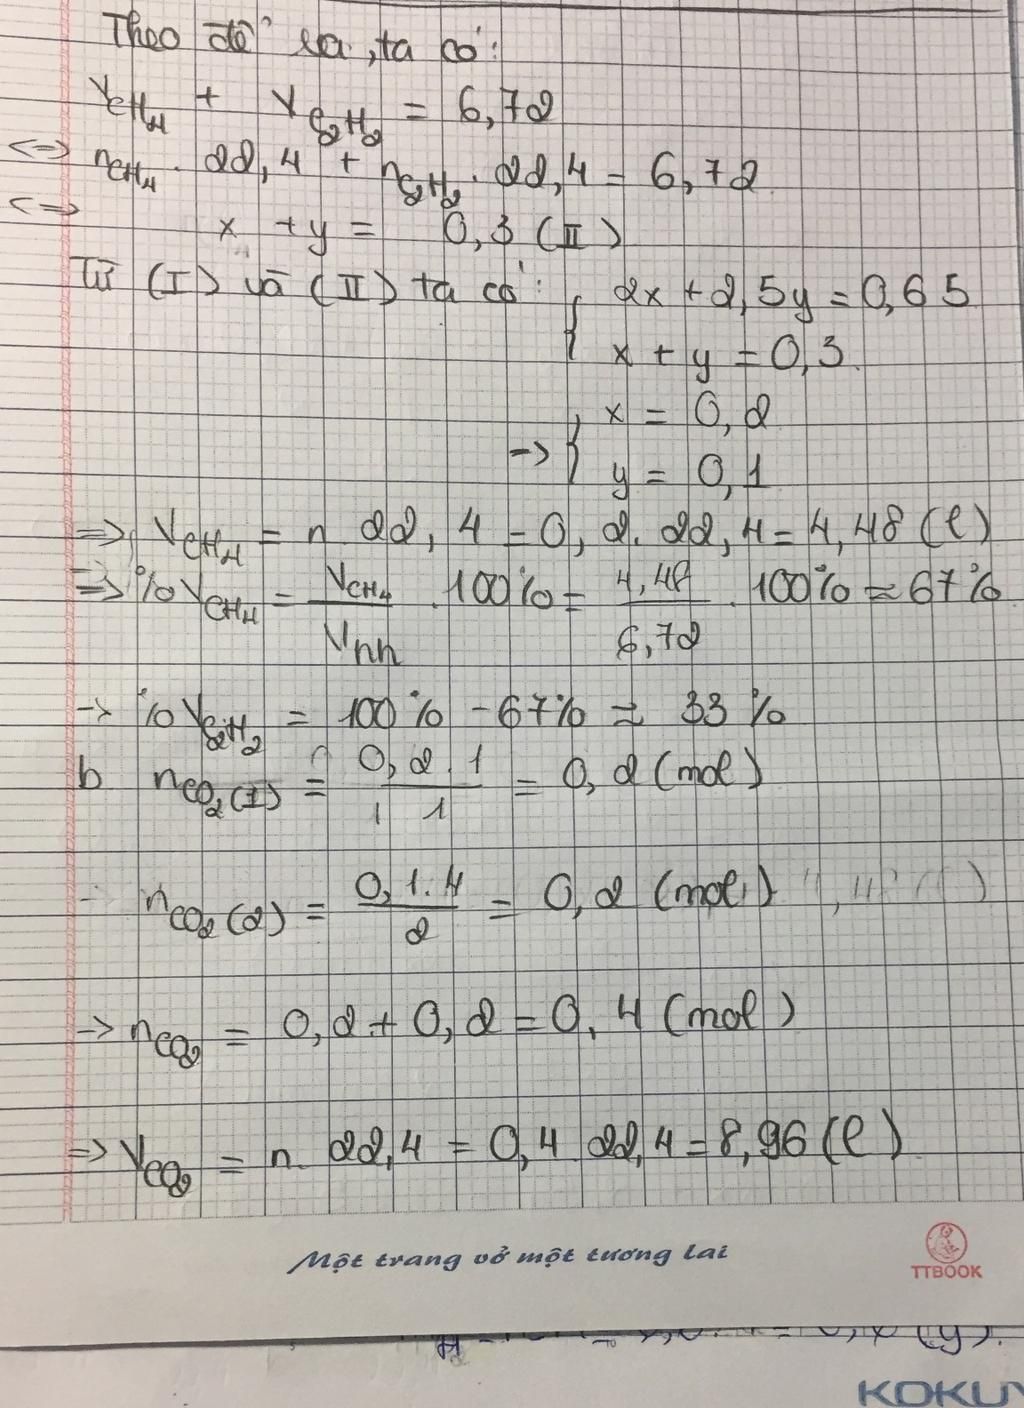 Theo đề ra, ta có:
V_CH4 + V_C2H2 = 6,72
<=> n_CH4 . 22,4 + n_C2H2 . 22,4 = 6,72
<=> x + y = 0,3 (II)
Từ (I) và (II) ta có: { 2x + 2,5y = 0,65
x + y = 0,3
-> { x = 0,2
y = 0,1
=> V_CH4 = n . 22,4 = 0,2. 22,4 = 4,48 (l)
=> %V_CH4 = V_CH4 / V_hh . 100% = 4,48 / 6,72 . 100% ≈ 67%
-> %V_C2H2 = 100% - 67% ≈ 33%
b n_CO2(1) = 0,2 . 1 / 1 = 0,2 (mol)
n_CO2(2) = 0,1 . 4 / 2 = 0,2 (mol)
-> n_CO2 = 0,2 + 0,2 = 0,4 (mol)
=> V_CO2 = n. 22,4 = 0,4 22,4 = 8,96 (l)
Một trang vở một tương lai
TTBOOK
KOKUY